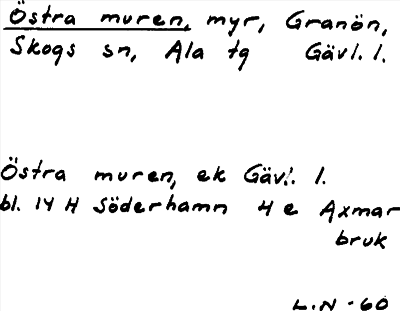 Östra muren, myr, Granön,
Skogs sn, Ala tg Gävl. l.
Östra muren, ek Gävl. l.
bl. 14 H Söderhamn 4 e Axmar
bruk
L.N -60